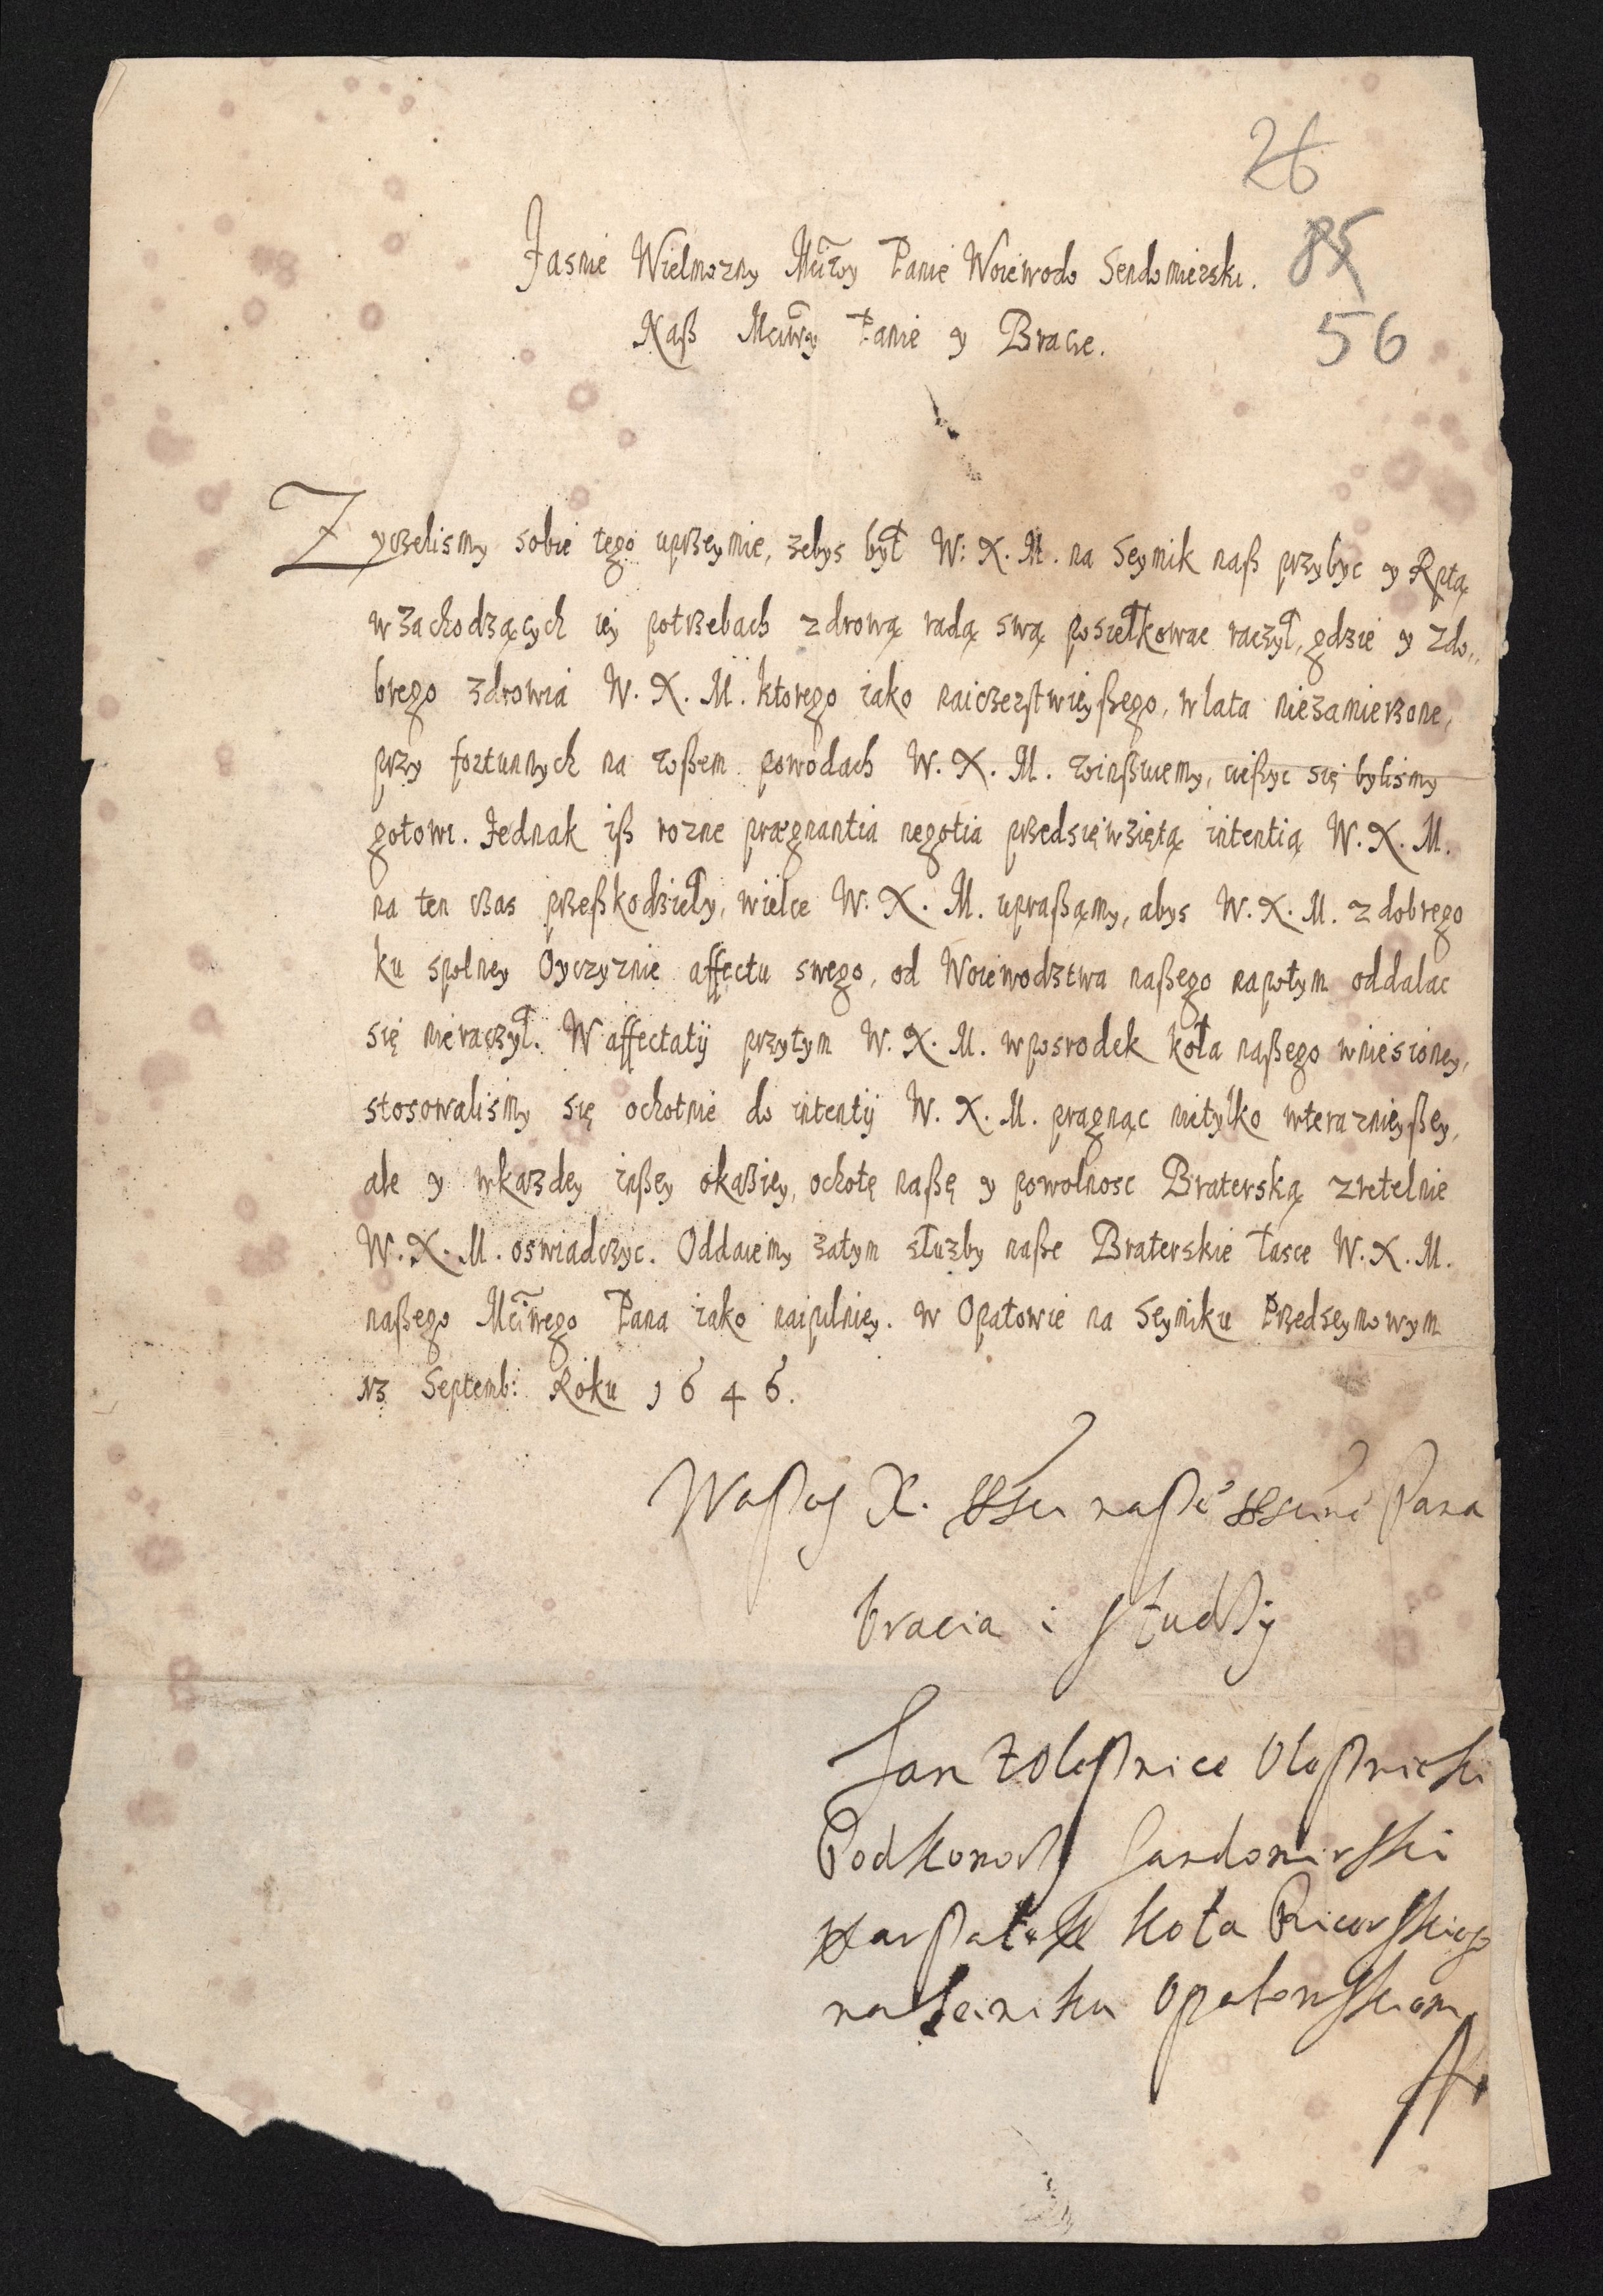 26
85
56
Jasnie Wielmozny Mciwy Panie Woiewodo Sendomierski.
Naß Mciwy Panie y Bracie.
Zyczelismy sobie tego uprzeymie, zebys był W: X. M. na Seymik naß przybyc y Rptą
w zachodzących iey potrzebach zdrową radą swą posiełkowac raczył, gdzie y z do„
brego zdrowia W. X. M. ktorego iako naiczerstwieyßego, w lata niezamierzone,
przy fortunnych na wßem powodach W. X. M. winßuiemy, cießyc się bylismy
gotowi. Jednak iß rozne prægnantia negotia przedsięwziętą intentią W. X. M.
na ten czas przeßkodzieły, wielce W. X. M. upraßamy, abys W. X. M. z dobrego
ku spolney Oyczyznie affectu swego, od Woiewodztwa naßego napotym oddalac
się nieraczył. W affectatij przytym W. X. M. wposrodek koła naßego wniesioney,
stosowalismy się ochotnie do intentij W. X. M. pragnąc nietylko wterazniejßey,
ale y wkazdey inßey okaziey, ochotę naßę y powolnosc Braterską zretelnie
W. X. M. oswiadczyc. Oddaiemy zatym słuzby naße Braterskie łasce W. X. M.
naßego Mciwego Pana iako naipilniey. w Opatowie na Seymiku Przedseymowym
13 Septemb: Roku 1646.
Waßey X. Mci naße Mciwe Pana
bracia i słudzy
Jan z Oleßnice Oleßnicki
Podkomorzy Sandomirski
Marßałek koła Ricerskiego
na Seimiku Opatowskiem